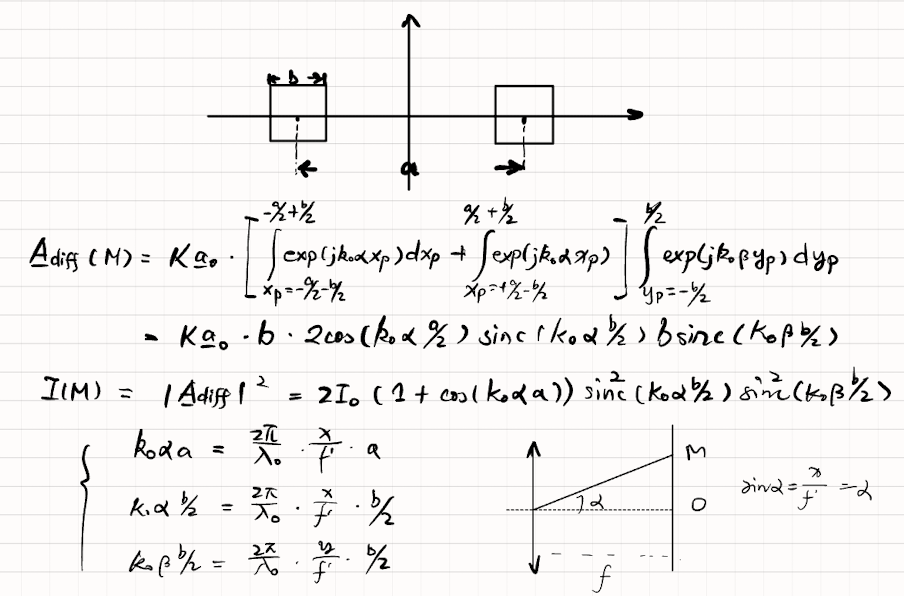 b
a
A̲diff (M) = K a̲₀ · [ ∫_{xp=-a/2-b/2}^{-a/2+b/2} exp(jk₀αxp)dxp + ∫_{xp=+a/2-b/2}^{a/2+b/2} exp(jk₀αxp) ] ∫_{yp=-b/2}^{b/2} exp(jk₀βyp)dyp
= K a̲₀ · b · 2cos(k₀α a/2) sinc(k₀α b/2) b sinc(k₀β b/2)
I(M) = |A̲diff|² = 2I₀ (1 + cos(k₀αa)) sinc²(k₀α b/2) sinc²(k₀β b/2)
{ k₀αa = 2π/λ₀ · x/f' · a
k₀α b/2 = 2π/λ₀ · x/f' · b/2
k₀β b/2 = 2π/λ₀ · y/f' · b/2
M
α
O
f
sinα = x/f' = α